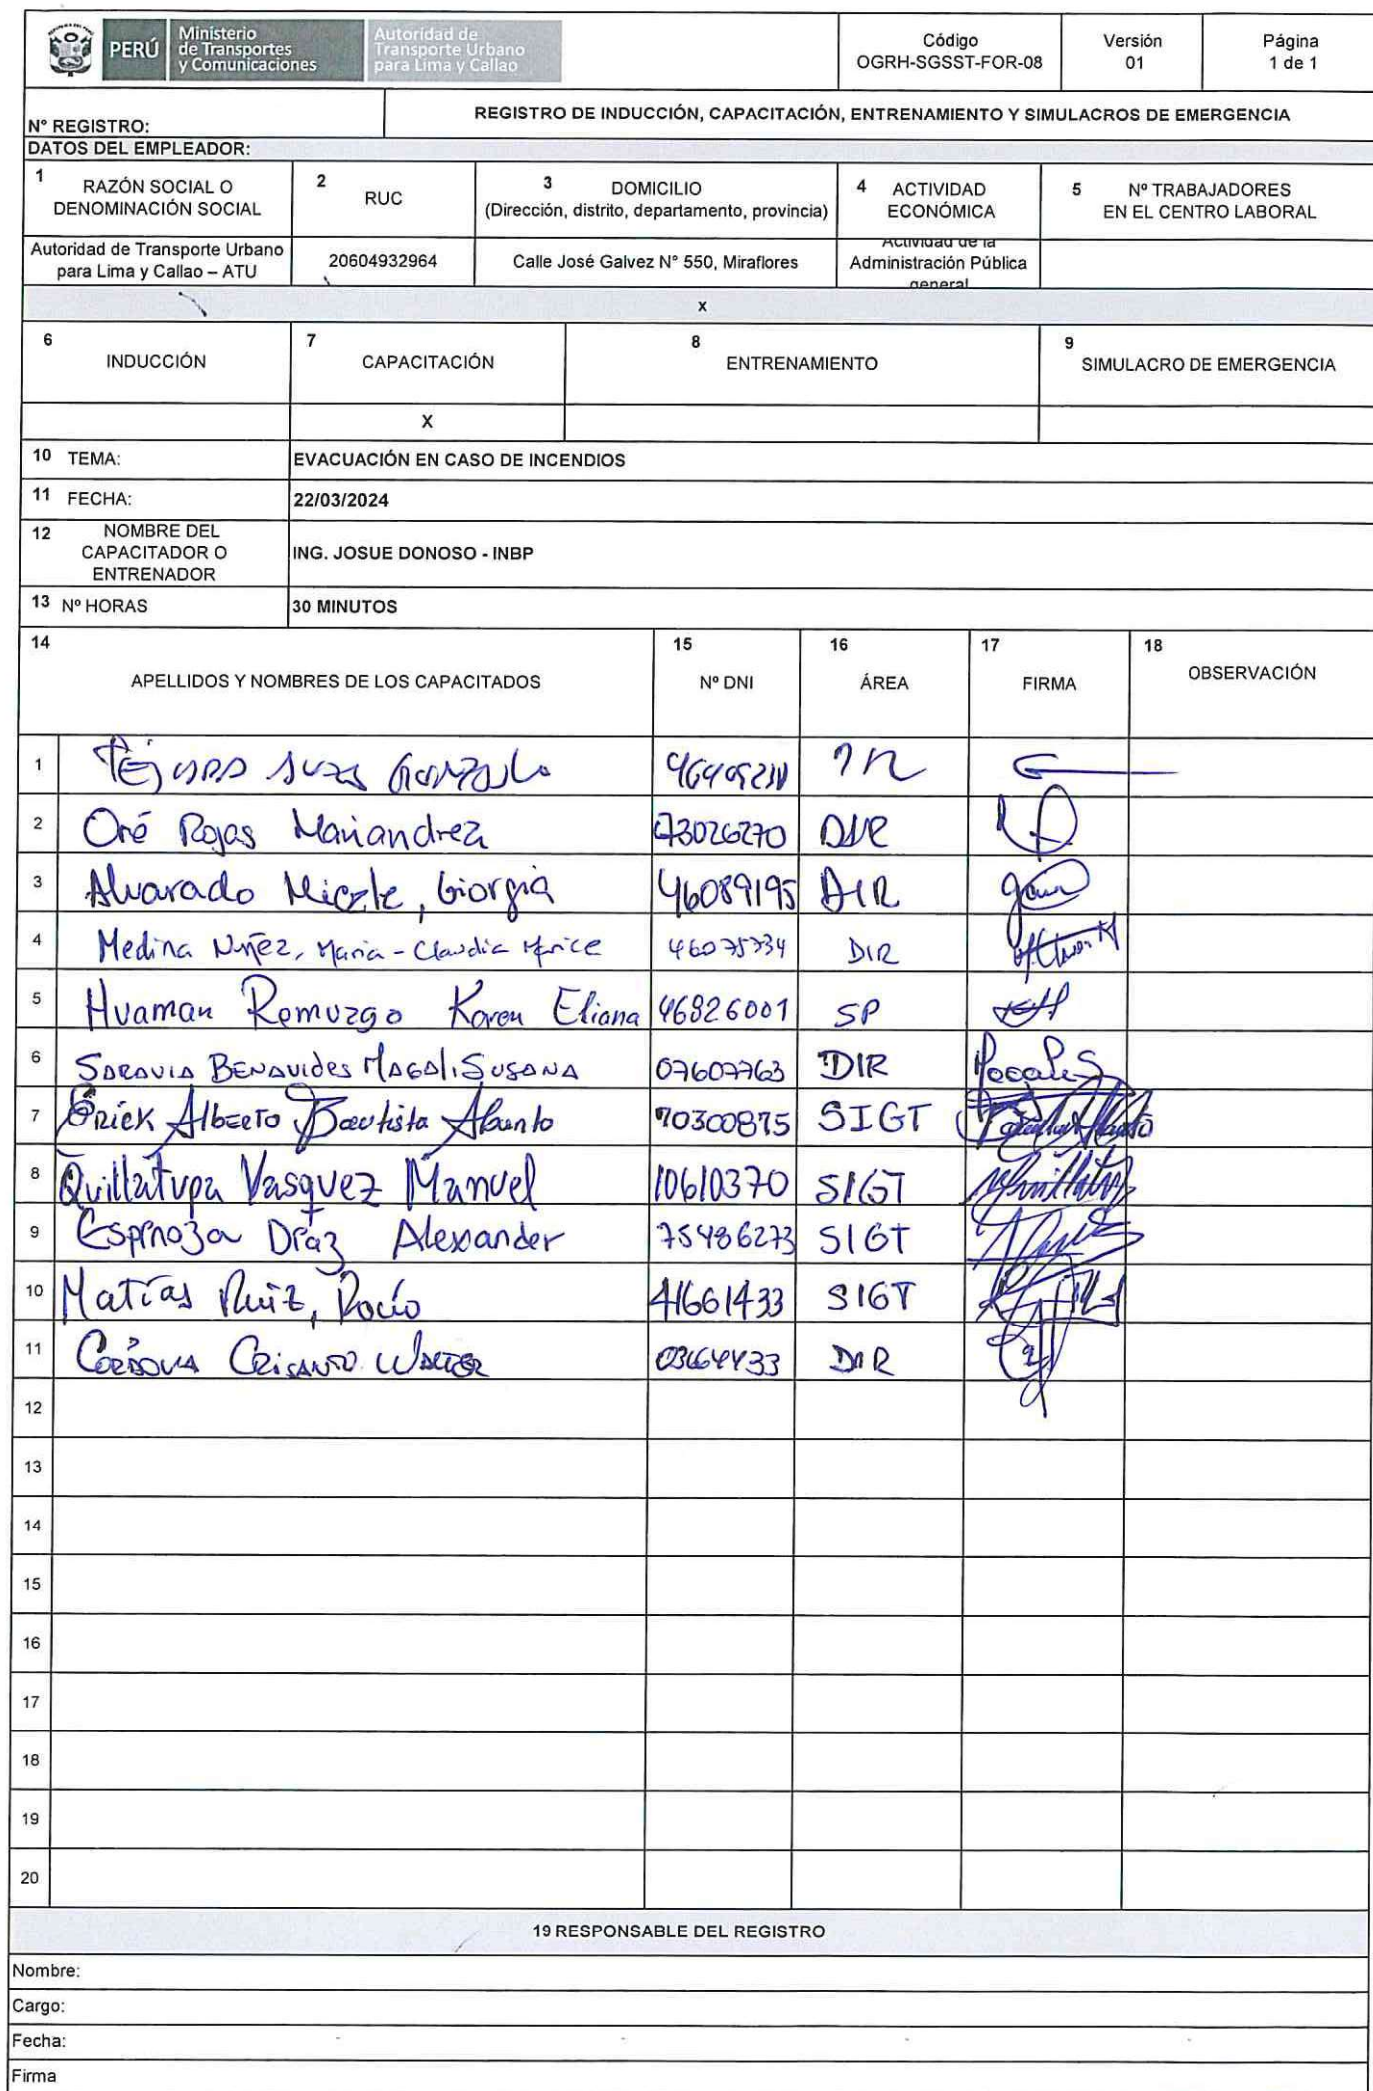 PERÚ
Ministerio
de Transportes
y Comunicaciones
Autoridad de
Transporte Urbano
para Lima y Callao
Código
OGRH-SGSST-FOR-08
Versión
01
Página
1 de 1
N° REGISTRO:
REGISTRO DE INDUCCIÓN, CAPACITACIÓN, ENTRENAMIENTO Y SIMULACROS DE EMERGENCIA
DATOS DEL EMPLEADOR:
1 RAZÓN SOCIAL O
DENOMINACIÓN SOCIAL
2 RUC
3 DOMICILIO
(Dirección, distrito, departamento, provincia)
4 ACTIVIDAD
ECONÓMICA
5 Nº TRABAJADORES
EN EL CENTRO LABORAL
Autoridad de Transporte Urbano
para Lima y Callao – ATU
20604932964
Calle José Galvez N° 550, Miraflores
Actividad de la
Administración Pública
general
x
6 INDUCCIÓN
7 CAPACITACIÓN
8 ENTRENAMIENTO
9 SIMULACRO DE EMERGENCIA
X
10 TEMA: EVACUACIÓN EN CASO DE INCENDIOS
11 FECHA: 22/03/2024
12 NOMBRE DEL
CAPACITADOR O
ENTRENADOR
ING. JOSUE DONOSO - INBP
13 Nº HORAS 30 MINUTOS
14 APELLIDOS Y NOMBRES DE LOS CAPACITADOS
15 Nº DNI
16 ÁREA
17 FIRMA
18 OBSERVACIÓN
1
2 Oré Rojas Mariandrea 73026270 DIR
3 Alvarado Giorgia 46089195 DIR
4 Medina Nuñez, Maria-Claudia DIR
5 Huaman Remuzgo Karen Eliana 46826001 SP
6 SARAVIA BENAVIDES MAGALI SUSANA 07607763 DIR
7 Erick Alberto Bautista Abanto 70300875 SIGT
8 Quillatupa Vasquez Manuel 10610370 SIGT
9 Espinoza Díaz Alexander 75486273 SIGT
10 Matías Ruiz, Rocío 41661433 SIGT
11 CÓRDOVA CRISANTO WALTER 03664433 DIR
12
13
14
15
16
17
18
19
20
19 RESPONSABLE DEL REGISTRO
Nombre:
Cargo:
Fecha:
Firma